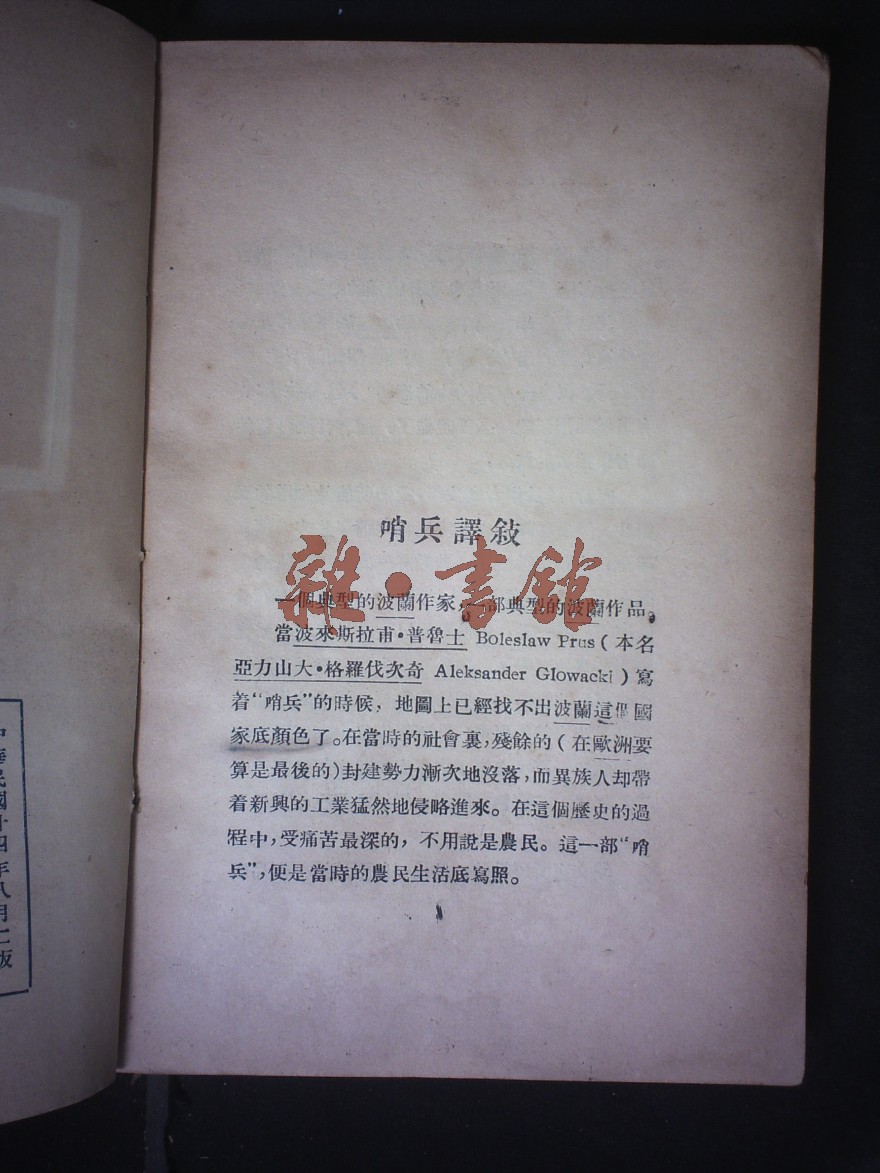 哨兵譯敍
雜·書館
一個典型的波蘭作家,一部典型的波蘭作品。
當波來斯拉甫·普魯士 Boleslaw Prus(本名
亞力山大·格羅伐次奇 Aleksander Glowacki)寫
着“哨兵”的時候,地圖上已經找不出波蘭這個國
家底顏色了。在當時的社會裏,殘餘的(在歐洲要
算是最後的)封建勢力漸次地沒落,而異族人却帶
着新興的工業猛然地侵略進來。在這個歷史的過
程中,受痛苦最深的,不用說是農民。這一部“哨
兵”,便是當時的農民生活底寫照。
中華民國廿四年八月二版